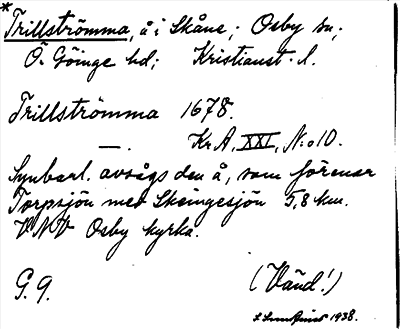 * Trillströmma, å i Skåne; Osby sn;
Ö. Göinge hd; Kristianst. l.
Trillströmma 1678.
—. Kr.A, XXI, N:o 10.
Synbarl. avsågs den å, som förenar
Torpsjön med Skeingesjön 5,8 km.
VNV Osby kyrka.
G. 9. (Vänd!)
1938.